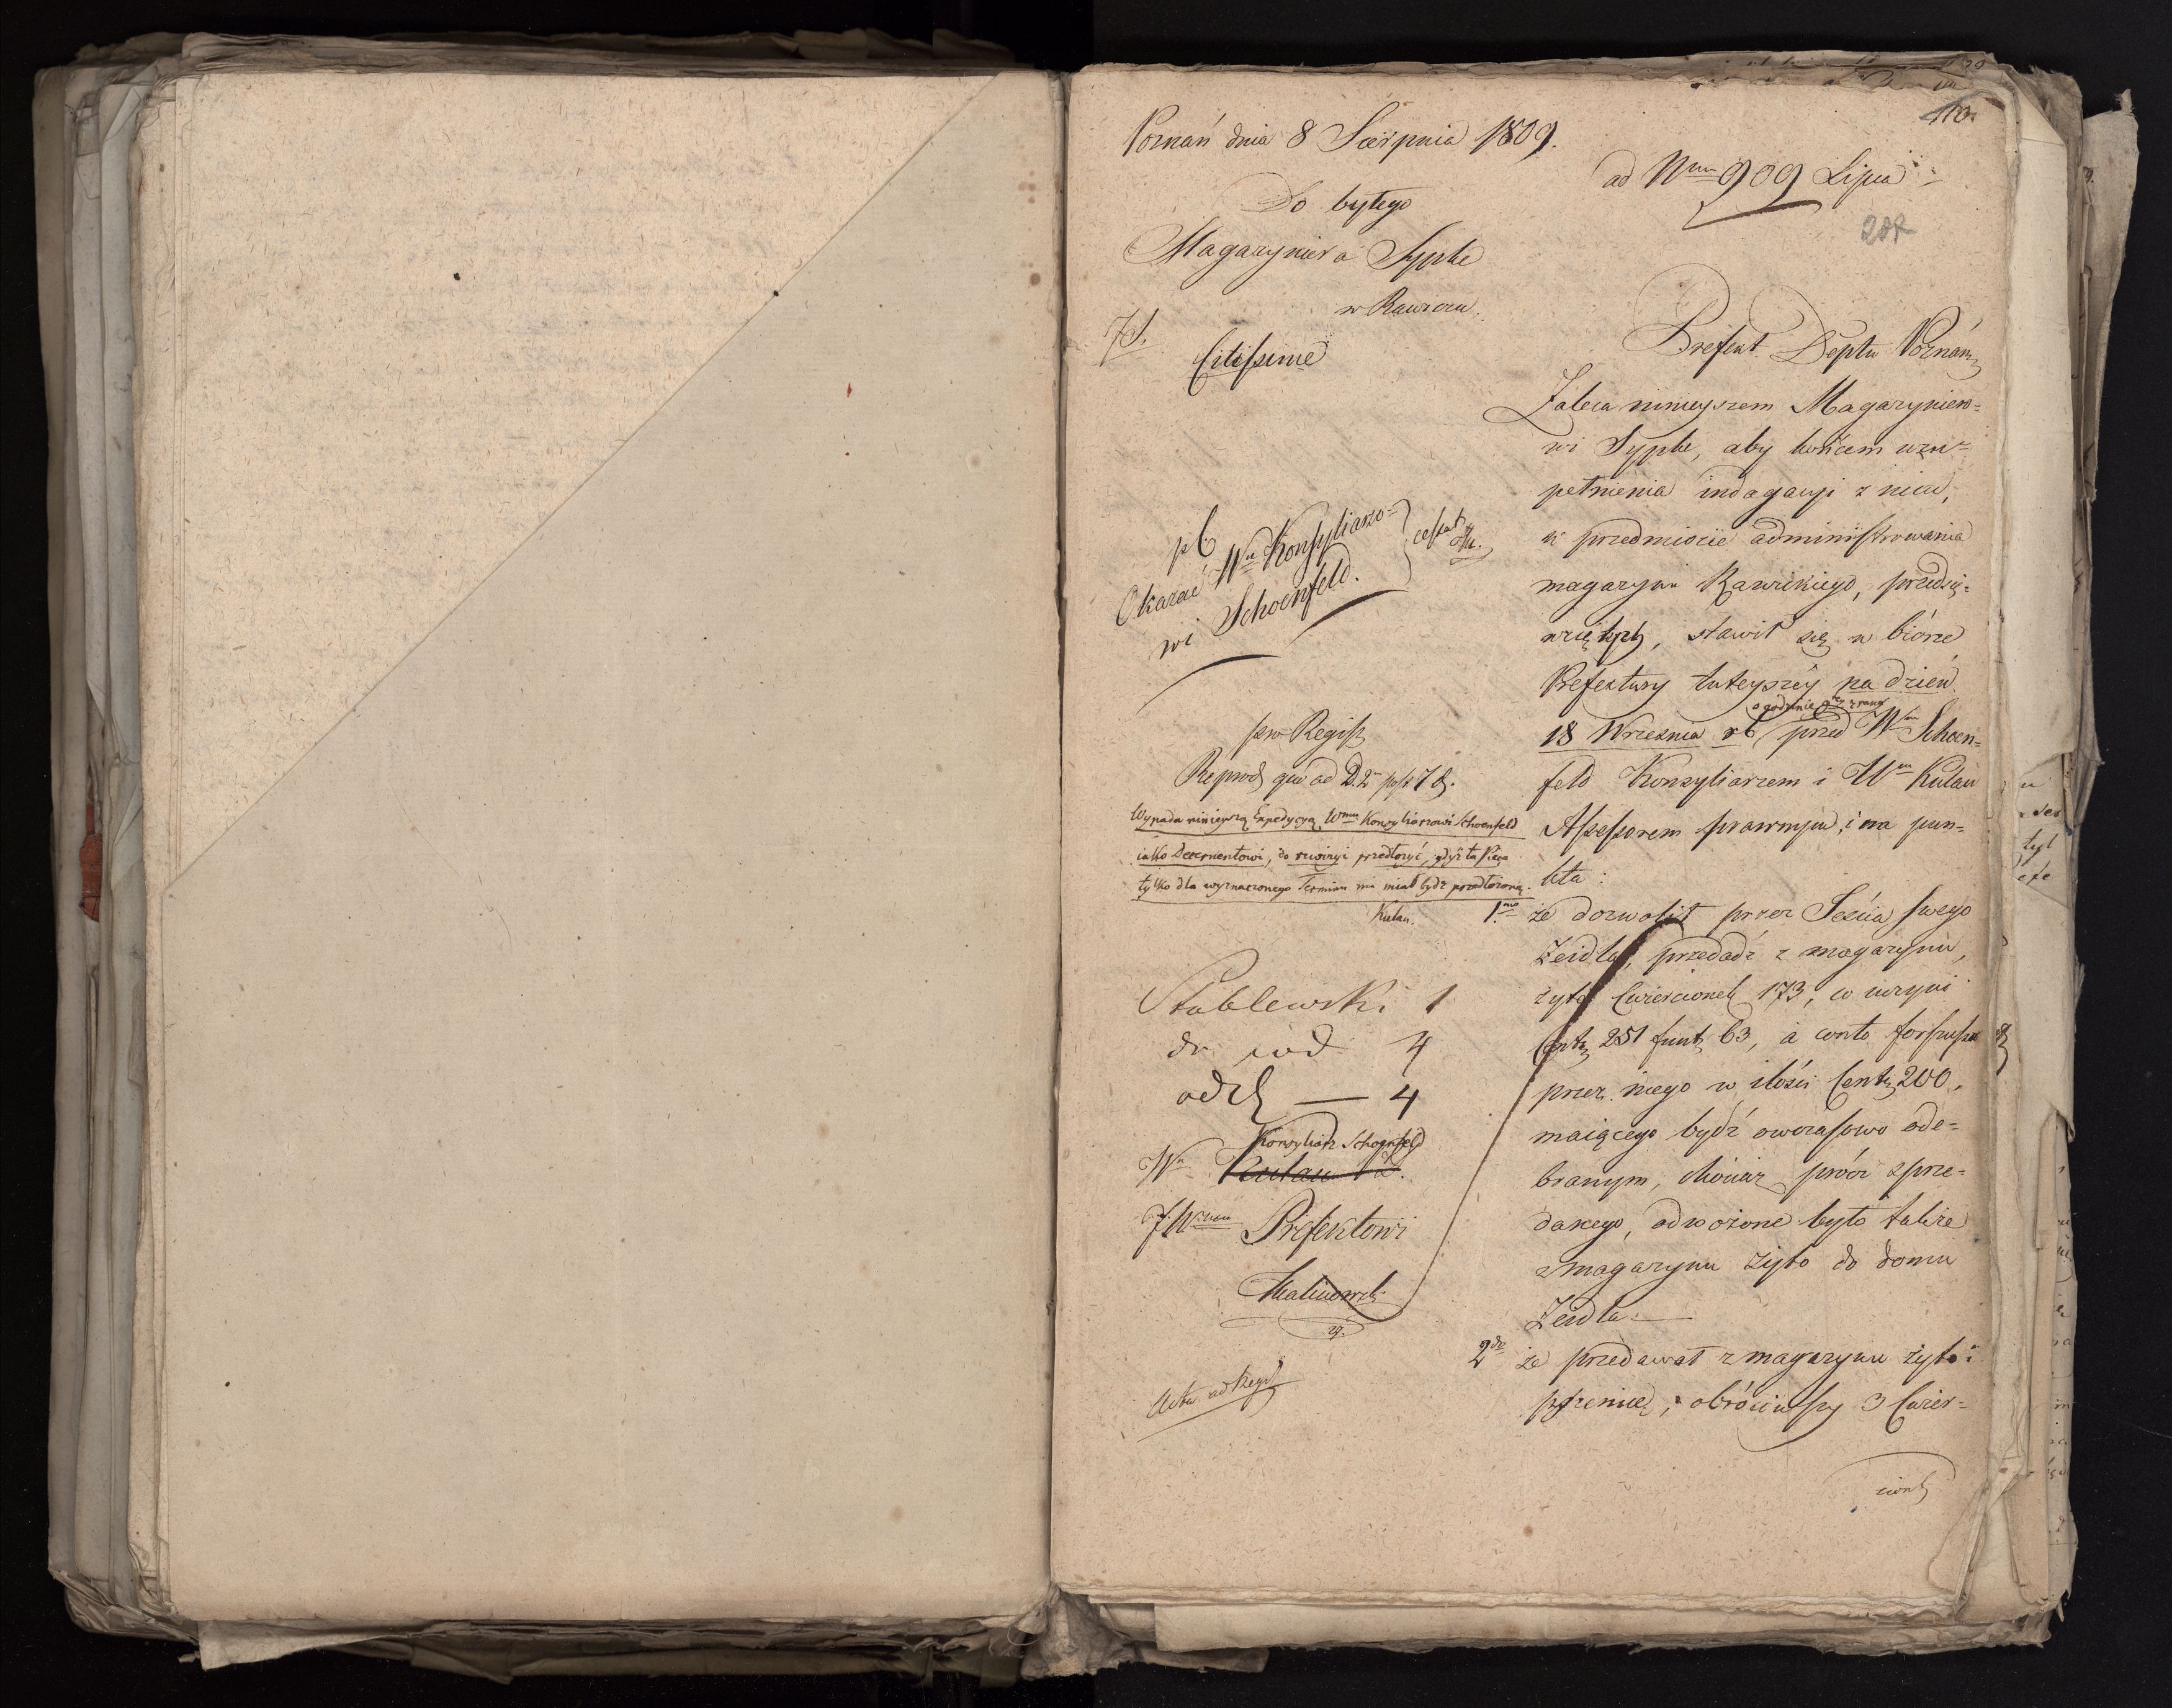 Poznań dnia 8 Sierpnia 1809.
ad Num 909 Lipca
207
Do bytego
Magazyniera Sypke
w Rawiczu.
Citissime
Prefekt Deptu Poznań
Zaleca ninieyszem Magazyniero=
wi Sypke, aby końcem uzu=
pełnienia indagacyi z nim,
w przedmiocie administrowania
magazynu Rawickiego, przedsię=
wziętych, stawił się w biórze
Prefektury tuteyszéy na dzień
o godzinie 9tey z rana
18 Września rb przed Wm Schoen=
feld Konsyliarzem i Wm Kulau
Assessorem prawnym, i na pun=
kta:
1mo że dozwolił przez Teścia swego
Zeidla, przedadź z magazynu,
żyta Cwierciowek 173, co czyni
Centr 251 funt 63, à conto forszusu
przez niego w ilości Cent 200,
maiącego bydź owczasowo ode=
branym, chociaż prócz zprze=
danego, odwożone było także
z magazynu żyto do domu
Zeidla.
2do że przedawał z magazynu żyto i
pszenicę, obróciwszy 3 Cwier=
ciowk
pb
Okazać Wu Konsyliarzo=
wi Schoenfeld.
cessat
pro Regist
Reprod
Wypada ninieyszą Expedycyą Wmu Konsyliarzowi Schoenfeld
iako Decernentowi, do rewizyi przedłożyć, gdyż ta Kulau
tylko dla wyznaczonego Terminu mi miał bydź przedłożoną.
Kulau.
Stablewski 1
4
4
Konsyliarz Schoenfeld
Wu Kulau
JWmu Prefektowi
Malinowski
Acta ad Regis